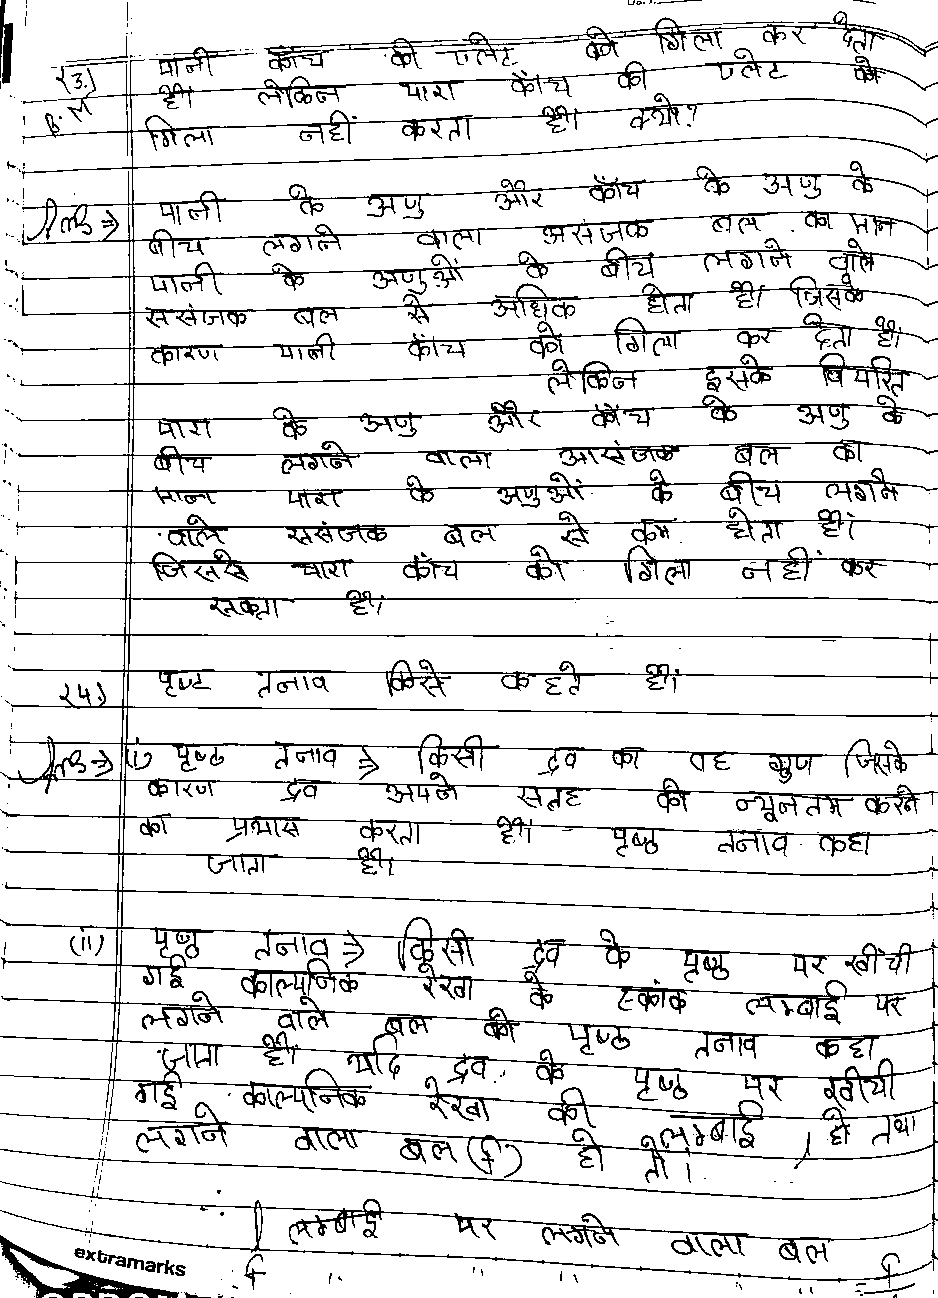 23.) पानी काँच की प्लेट को गिला कर देता
B.M है। लेकिन पारा काँच की प्लेट को
गिला नहीं करता है। क्यो?
Ans⇒ पानी के अणु और काँच के अणु के
बीच लगने वाला असंजक बल का मान
पानी के अणुओं के बीच लगने वाले
ससंजक बल से अधिक होता है। जिसके
कारण पानी काँच को गिला कर देता है।
लेकिन इसके विपरित
पारा के अणु और काँच के अणु के
बीच लगने वाला आसंजक बल का
मान पारा के अणुओं के बीच लगने
वाले ससंजक बल से कम होता है।
जिससे पारा काँच को गिला नहीं कर
सकता है।
24.) पृष्ट तनाव किसे कहते है।
Ans⇒ (i) पृष्ठ तनाव ⇒ किसी द्रव का वह गुण जिसके
कारण द्रव अपने सतह को न्यूनतम करने
का प्रयास करता है। पृष्ठ तनाव कहा
जाता है।
(ii) पृष्ठ तनाव ⇒ किसी द्रव के पृष्ठ पर खींची
गई काल्पनिक रेखा के एकांक लम्बाई पर
लगने वाले बल को पृष्ठ तनाव कहा
जाता है। यदि द्रव के पृष्ठ पर खीची
गई काल्पनिक रेखा की लम्बाई l हो तथा
लगने वाला बल (f) हो तो।
∴ l लम्बाई पर लगने वाला बल
f
extramarks